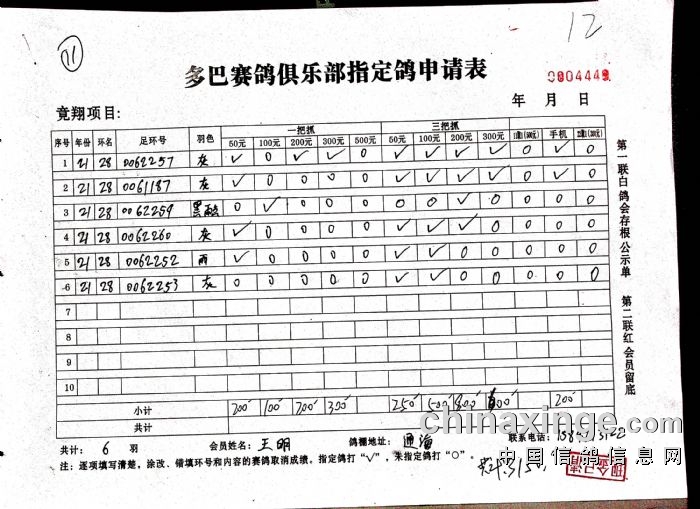 12
多巴赛鸽俱乐部指定鸽申请表
0004449
年 月 日
竟翔项目:
序号 年份 环名 足环号 羽色 一把抓 三把抓
50元 100元 200元 300元 500元 50元 100元 200元 300元 手机
1 21 28 0062257 灰 √ 0 √ √ 0 √ √ √ √ 0 √ 0
2 21 28 0061187 灰 √ 0 0 0 0 √ √ √ √ 0 √ 0
3 21 28 0062259 黑 0 √ 0 0 0 0 0 √ 0 0 0 0
4 21 28 0062260 灰 √ 0 0 0 0 √ √ √ 0 0 0 0
5 21 28 0062252 雨 √ 0 0 0 0 √ √ 0 0 0 0 0
6 21 28 0062253 灰 0 0 0 0 0 √ √ 0 0 0 0 0
7
8
9
10
小计 200 100 200 300 250 500 800 600 200
共计
共计: 6 羽 会员姓名: 王明 鸽棚地址: 通海 联系电话:
注: 逐项填写清楚, 涂改、错填环号和内容的赛鸽取消成绩。指定鸽打"√", 未指定鸽打"O"。
第一联白 鸽会存根 公示单 第二联红 会员留底
chinaxinge.com
中国信鸽信息网